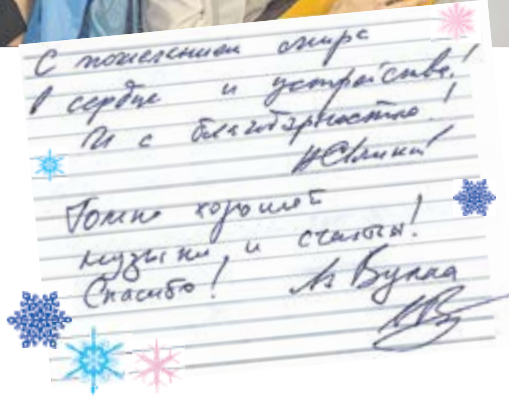 С пожеланием мира
в сердце и устройства!
И с благодарностью!
Только хорошей
музыки и счастья!
Спасибо!